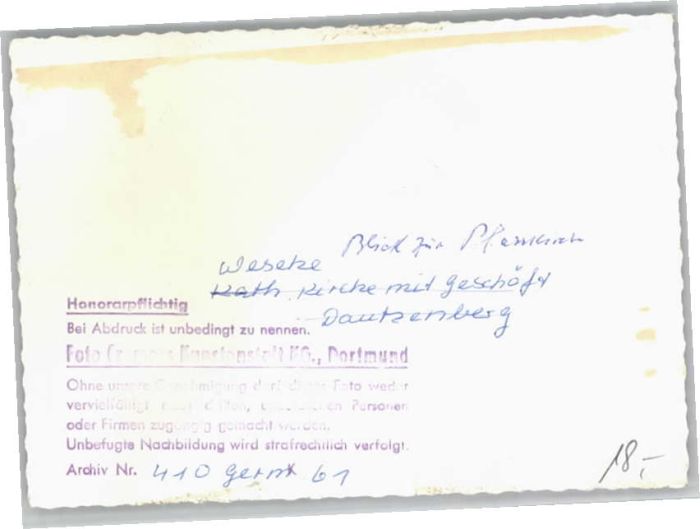 Blick zur Pfarrkirche
Weseke
Kath. Kirche mit Geschäft
Dautzenberg
Honorarpflichtig
Bei Abdruck ist unbedingt zu nennen.
Foto Kunstanstalt KG., Dortmund
Ohne unsere Genehmigung darf dieses Foto weder
vervielfältigt Personen
oder Firmen zugängig gemacht werden.
Unbefugte Nachbildung wird strafrechtlich verfolgt.
Archiv Nr. 410 61
18,-